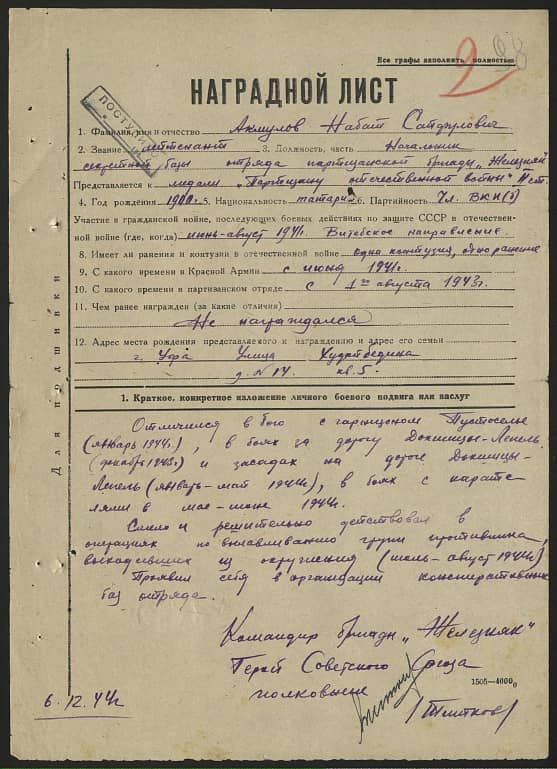 Все графы заполнять полностью
98
9
НАГРАДНОЙ ЛИСТ
ПОСТУПИЛО
1. Фамилия, имя и отчество Акмулов Набат
2. Звание лейтенант 3. Должность, часть Начальник
секретной базы отряда партизанской бригады „Железняк"
Представляется к медали „Партизану отечественной войны" II ст
4. Год рождения 1900г. 5. Национальность татарин 6. Партийность Чл. ВКП(б)
Участие в гражданской войне, последующих боевых действиях по защите СССР в отечествен-
ной войне (где, когда) июнь-август 1941г. Витебское направление.
8. Имеет ли ранения и контузии в отечественной войне одна контузия, одно ранение
9. С какого времени в Красной Армии с июня 1941г.
10. С какого времени в партизанском отряде с 1го августа 1943г.
11. Чем ранее награжден (за какие отличия)
Не награждался
12. Адрес места рождения представляемого к награждению и адрес его семьи
г. Уфа Улица
д. № 14 кв. 5.
Для подшивки
1. Краткое, конкретное изложение личного боевого подвига или заслуг
Отличился в бою с гарнизоном Пустоселье
(январь 1944г.), в боях за дорогу Докшицы-Лепель
(декабрь 1943г) и засадах на дороге Докшицы-
Лепель (январь-май 1944г), в боях с карате-
лями в мае-июне 1944г.
Смело и решительно действовал в
операциях по вылавливанию групп противника,
выходивших из окружения (июль-август 1944г)
Проявил себя в организации конспиративных
баз отряда.
Командир бригады „Железняк"
Герой Советского Союза
полковник
1505-4000
/Титков/
6.12.44г